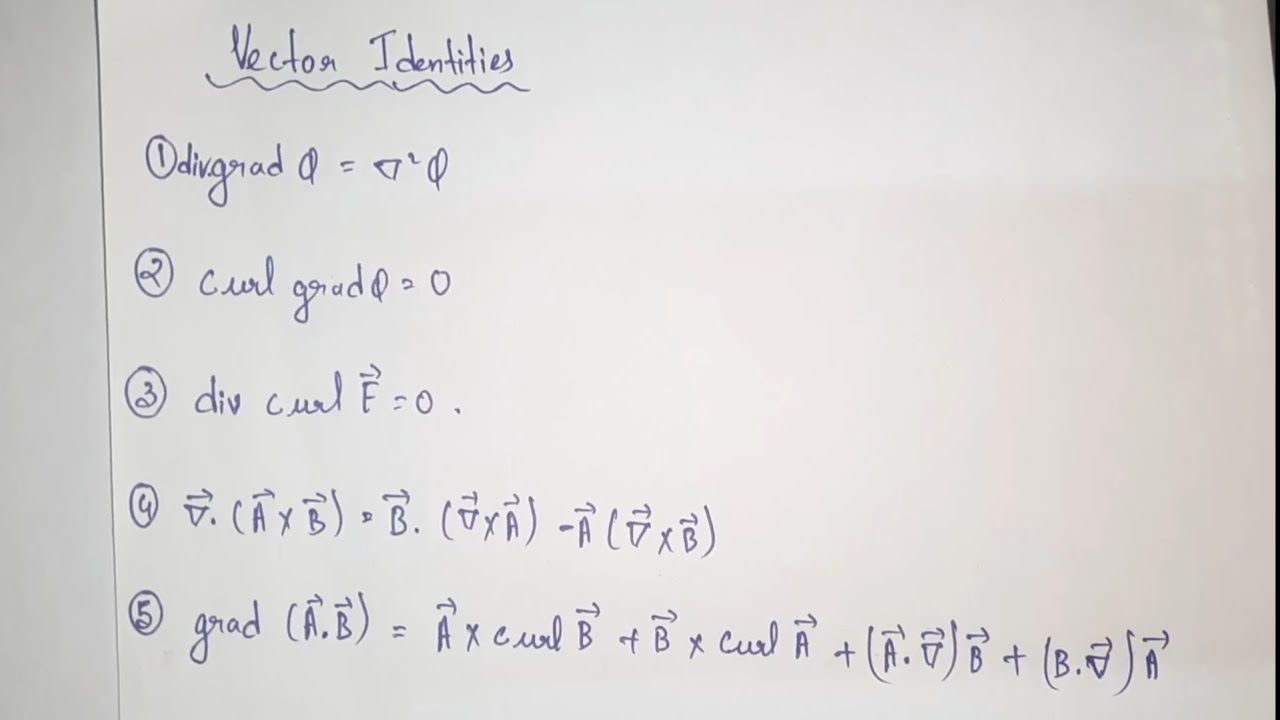 Vector Identities
① div.grad φ = ∇²φ
② curl grad φ = 0
③ div curl F⃗ = 0 .
④ ∇⃗. (A⃗ × B⃗) = B⃗. (∇⃗ × A⃗) - A⃗ (∇⃗ × B⃗)
⑤ grad (A⃗.B⃗) = A⃗ × curl B⃗ + B⃗ × curl A⃗ + (A⃗.∇⃗)B⃗ + (B.∇⃗)A⃗